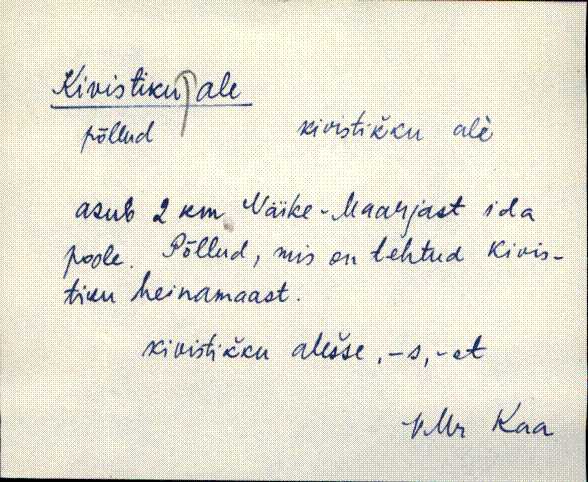 Kivistiku ale
põllud kivistikku alè
asub 2 km Väike-Maarjast ida
poole. Põllud, mis on tehtud Kivis-
tiku heinamaast.
kivistikku alešse, -s, -et
VMr Kaa